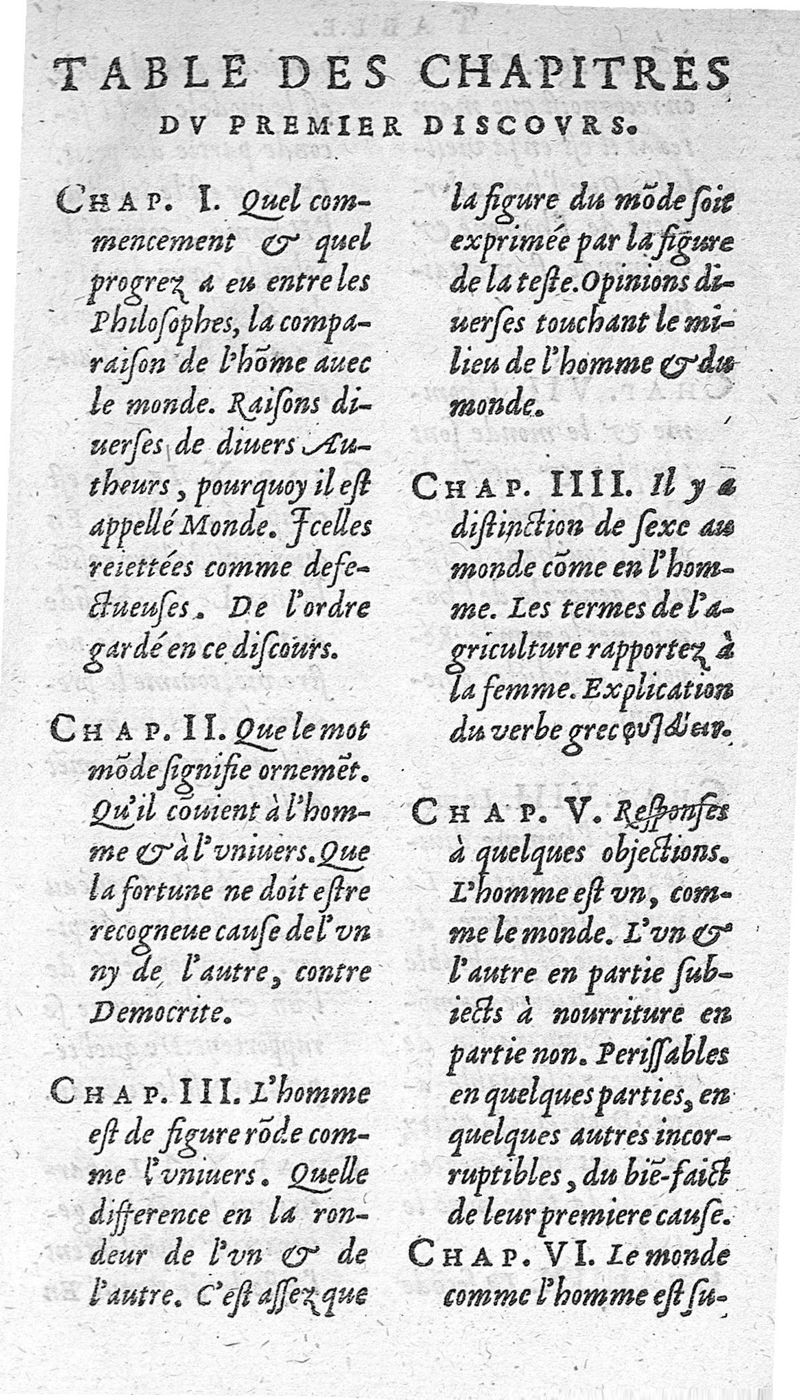 TABLE DES CHAPITRES
DV PREMIER DISCOVRS.
CHAP. I. Quel com-
mencement & quel
progrez a eu entre les
Philoſophes, la compa-
raiſon de l'hõme auec
le monde. Raiſons di-
uerſes de diuers Au-
theurs, pourquoy il eſt
appellé Monde. Icelles
reiettées comme defe-
ctueuſes. De l'ordre
gardé en ce diſcours.
CHAP. II. Que le mot
mõde ſignifie ornemẽt.
Qu'il cõuient à l'hom-
me & à l'vniuers. Que
la fortune ne doit eſtre
recogneue cauſe de l'vn
ny de l'autre, contre
Democrite.
CHAP. III. L'homme
eſt de figure rõde com-
me l'vniuers. Quelle
difference en la ron-
deur de l'vn & de
l'autre. C'eſt aſſez que
la figure du mõde ſoit
exprimée par la figure
de la teſte. Opinions di-
uerſes touchant le mi-
lieu de l'homme & du
monde.
CHAP. IIII. Il y a
diſtinction de ſexe au
monde cõme en l'hom-
me. Les termes de l'a-
griculture rapportez à
la femme. Explication
du verbe grec
CHAP. V. Reſponſes
à quelques objections.
L'homme eſt vn, com-
me le monde. L'vn &
l'autre en partie ſub-
iects à nourriture en
partie non. Periſſables
en quelques parties, en
quelques autres incor-
ruptibles, du biẽ-faict
de leur premiere cauſe.
CHAP. VI. Le monde
comme l'homme eſt ſu-